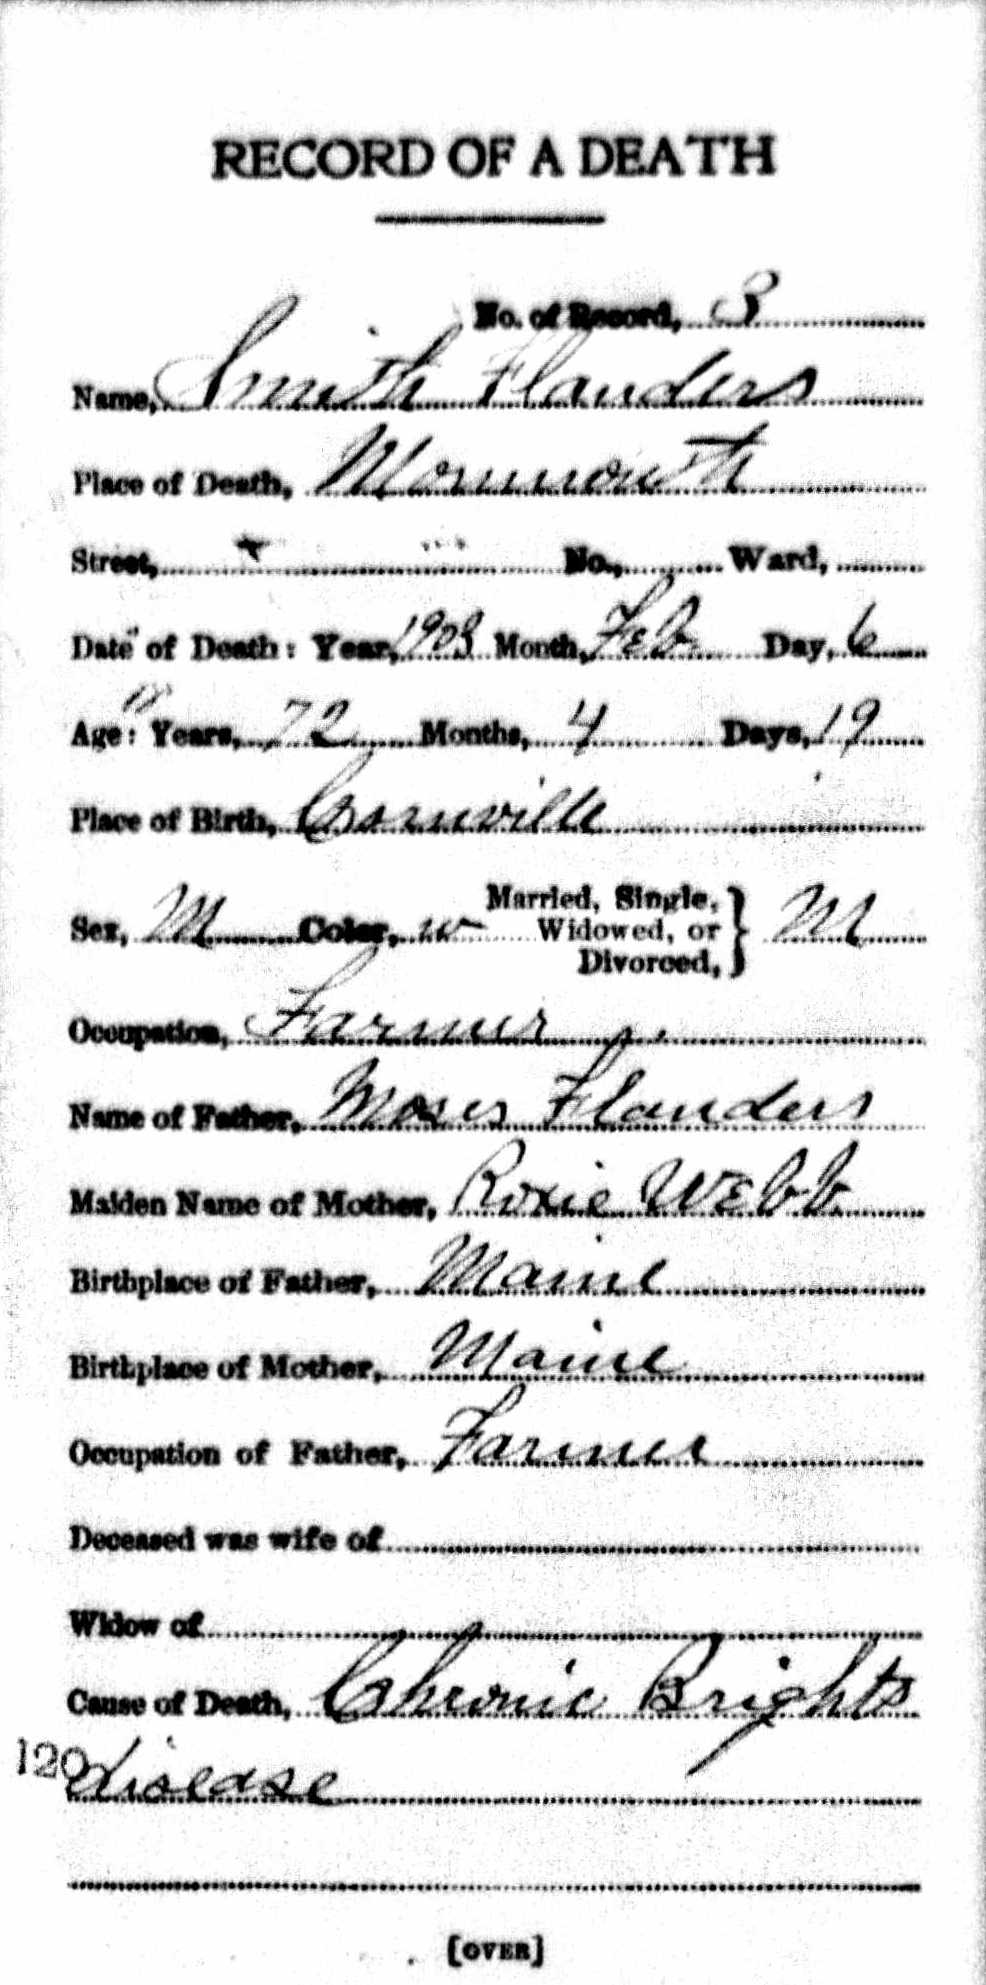 RECORD OF A DEATH
No. of Record, 3
Name, Smith Flanders
Place of Death, Monmouth
Street, No., Ward,
Date of Death: Year, 1903 Month, Feb Day, 6
Age: Years, 72 Months, 4 Days, 19
Place of Birth, Cornville
Married, Single,
Sex, M Color, w Widowed, or M
Divorced,
Occupation, Farmer
Name of Father, Moses Flanders
Maiden Name of Mother, Roxie Webb
Birthplace of Father, Maine
Birthplace of Mother, Maine
Occupation of Father, Farmer
Deceased was wife of
Widow of
Cause of Death, Chronic Brights
120 disease
[OVER]